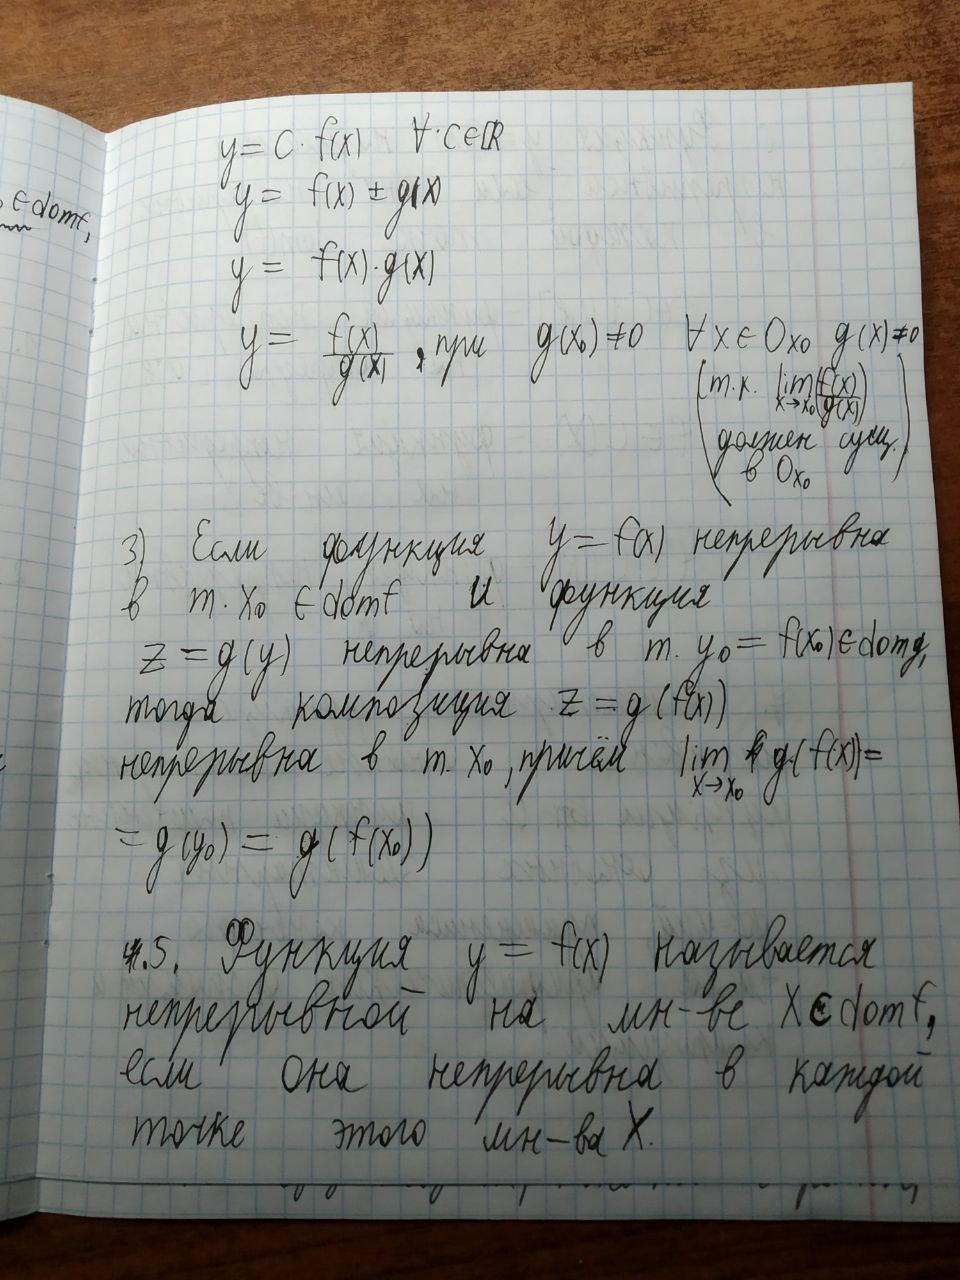 ∈ domf,
y = C · f(x) ∀ · C ∈ ℝ
y = f(x) ± g(x)
y = f(x) · g(x)
y = f(x)/g(x), при g(x₀) ≠ 0 ∀x ∈ Ox₀ g(x) ≠ 0
(т.к. lim x→x₀ (f(x)/g(x))
должен сущ.
в Ox₀)
3) Если функция y = f(x) непрерывна
в т. x₀ ∈ domf и функция
z = g(y) непрерывна в т. y₀ = f(x₀) ∈ domg,
тогда композиция z = g(f(x))
непрерывна в т. x₀, причём lim x→x₀ g(f(x)) =
= g(y₀) = g(f(x₀))
4.5. Функция y = f(x) называется
непрерывной на мн-ве X ⊂ domf,
если она непрерывна в каждой
точке этого мн-ва X.